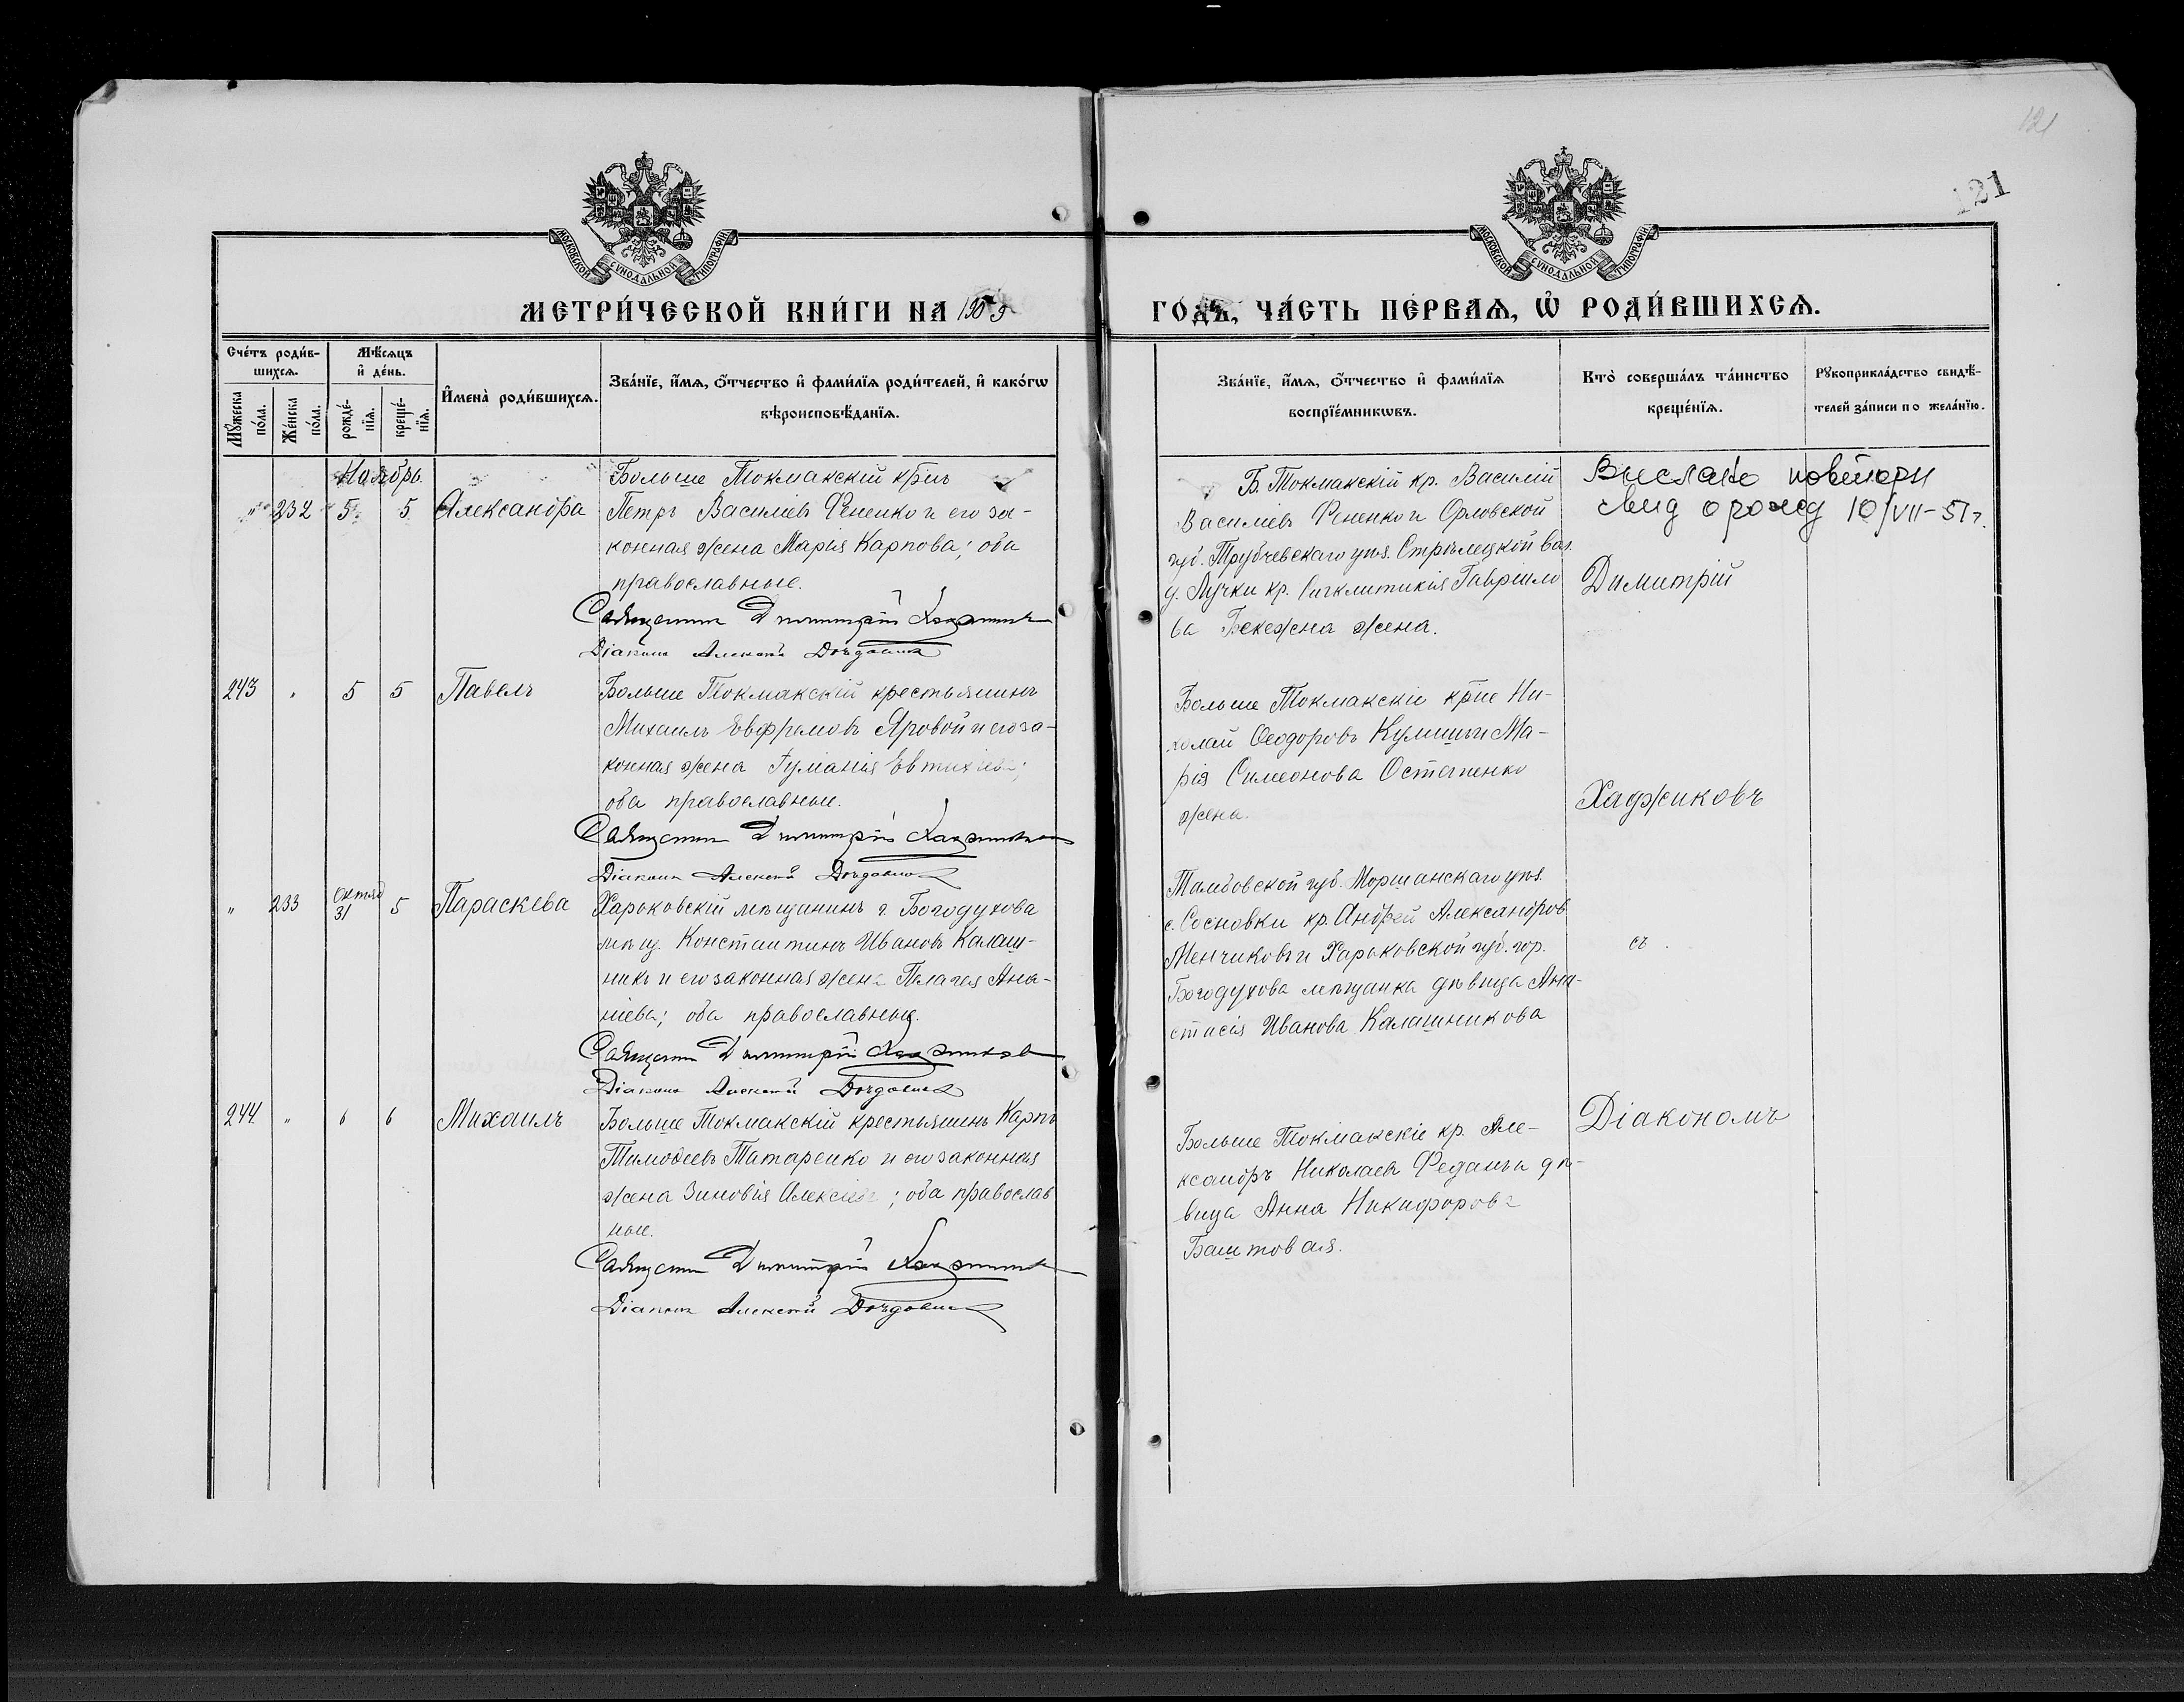 121
121
МОСКОВСКОЙ СѴНОДАЛЬНОЙ ТИПОГРАФІИ
МОСКОВСКОЙ СѴНОДАЛЬНОЙ ТИПОГРАФІИ
МЕТРИ́ЧЕСКОЙ КНИ́ГИ НА 1905
ГО́ДЪ, ЧА́СТЬ ПЕ́РВАѦ, Ѡ РОДИ́ВШИХСѦ.
Сче́тъ роди́в-
шихсѧ.
Мꙋжеска
по́ла.
Же́нска
по́ла.
Мѣ́сѧцъ
и҆ де́нь.
рожде́-
нїѧ.
креще́-
нїѧ.
И҆мена̀ роди́вшихсѧ.
Зва́нїе, и҆́мѧ, ѻ҆́тчество и҆ фами́лїѧ роди́телей, и҆ како́гѡ
вѣроисповѣ́данїѧ.
Зва́нїе, и҆́мѧ, ѻ҆́тчество и҆ фами́лїѧ
воспрїе́мникѡвъ.
Кто̀ соверша́лъ та́инство
креще́нїѧ.
Рꙋкоприкла́дство свидѣ́-
телей за́писи по жела́нїю.
Ноябрь.
" 232 5 5 Александра
Больше Токмакскій кр̃нъ
Петръ Василіевъ Фененко и его за-
конная жена Марія Карпова; оба
православные.
Священникъ Димитрій Хаджиковъ
Діаконъ Алексѣй
Б. Токмакскій кр. Василій
Василіевъ Фененко и Орловской
губ. Трубчевскаго уѣз. Стрѣлецкой вол.
д. Лучки кр. Синклитикія Гавріило
ва жена.
Выслано повторн
свид о рожд 10/VII-51г.
Димитрій
243 " 5 5 Павелъ
Больше Токмакскій крестьянинъ
Михаилъ Евфремовъ Яровой и его за-
конная жена Іуліанія Евтихіева;
оба православные.
Священникъ Димитрій Хаджиковъ
Діаконъ Алексѣй
Больше Токмакскіе кр̃не Ни-
колай Ѳеодоровъ и Ма-
рія Симеонова Остапенко
жена.
Хаджиковъ
" 233 Октяб 31 5 Параскева
Харьковскій мѣщанинъ г. Богодухова
мѣщ. Константинъ Ивановъ Калаш-
никъ и его законная жена Пелагея Ана-
ніева; оба православные.
Священникъ Димитрій Хаджиковъ
Діаконъ Алексѣй
Тамбовской губ. Моршанскаго уѣз.
с. Сосновки кр. Андрей Александровъ
Менчиковъ и Харьковской губ. гор.
Богодухова мѣщанка дѣвица Ана-
стасія Иванова Калашникова
съ
244 " 6 6 Михаилъ
Больше Токмакскій крестьянинъ Карпъ
Тимоѳеевъ Татаренко и его законная
жена Зиновія Алексіева; оба православ
ные.
Священникъ Димитрій Хаджиковъ
Діаконъ Алексѣй
Больше Токмакскіе кр. Але-
ксандръ Николаевъ и дѣ-
вица Анна Никифорова
Баштовая.
Діакономъ